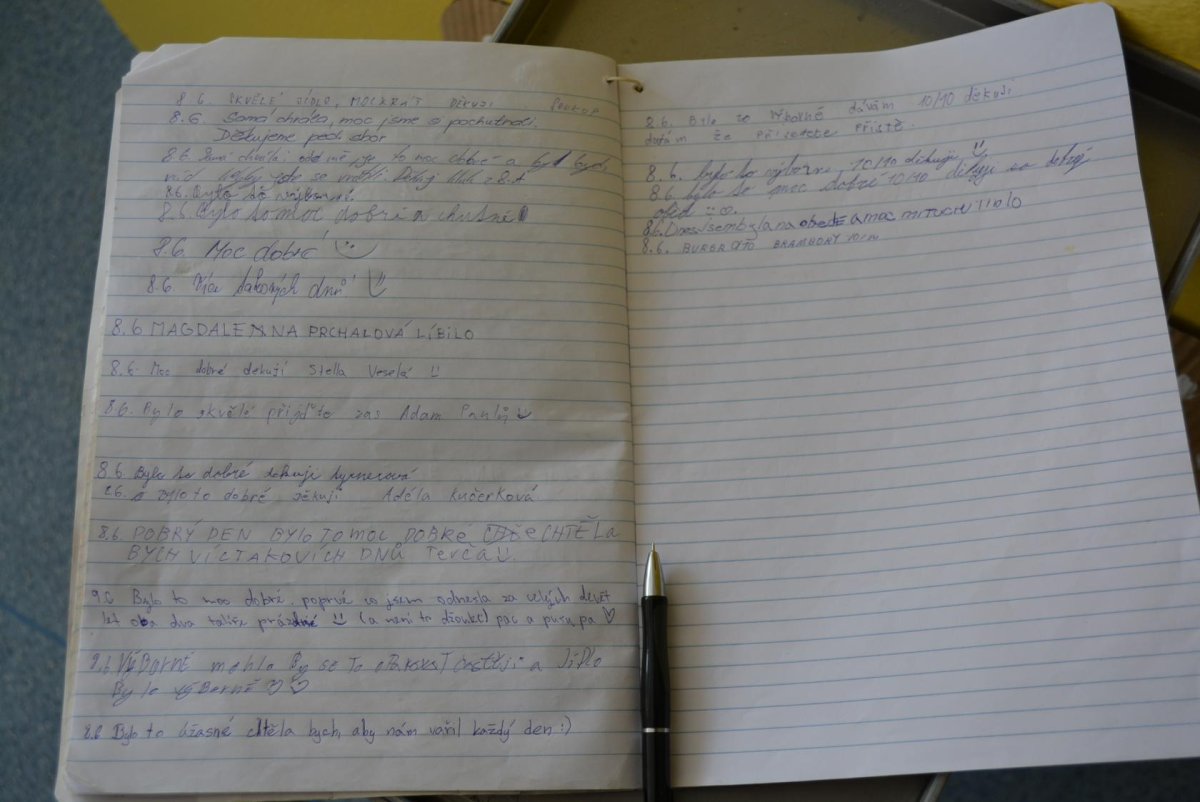 8.6. SKVĚLÉ JÍDLO, MOCKRÁT DĚKUJI
8.6. Samá chvála, moc jsme si pochutnali.
Děkujeme pěch sbor
8.6. chvála odemě, je to moc dobré a byl bych
rád kdyby jste se vrátili. Děkuji kluk z 8.A
8.6. Bylo to výborné.
8.6. Bylo to moc dobré a chutné
8.6. Moc dobré
8.6 Více takových dnů!
8.6 MAGDALENNA PRCHALOVÁ LÍBILO
8.6. Moc dobré dekuji Stella Veselá
8.6. Bylo skvělé přijďte zas Adam Pavlů
8.6. Bylo to dobré děkuji
8.6. Bylo to dobré děkuji Adéla Kučerková
8.6. DOBRÝ DEN BYLO TO MOC DOBRÉ CHTĚLA
BYCH VÍCTAKOVÍCH DNŮ Terča
9.6 Bylo to moc dobré, poprvé co jsem odnesla za celých devět
let oba dva talíře prázdné (a není to džouk) pac a pusu, pa
9.6 VýBORNÉ mohlo By se To častěji a JíDlo
Bylo výBorné
8.6 Bylo to úžasné chtěla bych, aby nám vařil každý den :)
8.6. Bylo to výborné dávám 10/10 děkuji
doufám že příště.
8.6. bylo to výborné 10/10 děkuji
8.6. bylo to moc dobré 10/10 děkuji za dobrý
oběd
8.6. Dnes jsem byla na obědě a moc mi tu chutnalo
8.6. BURGR A TO BRAMBORY 10/10